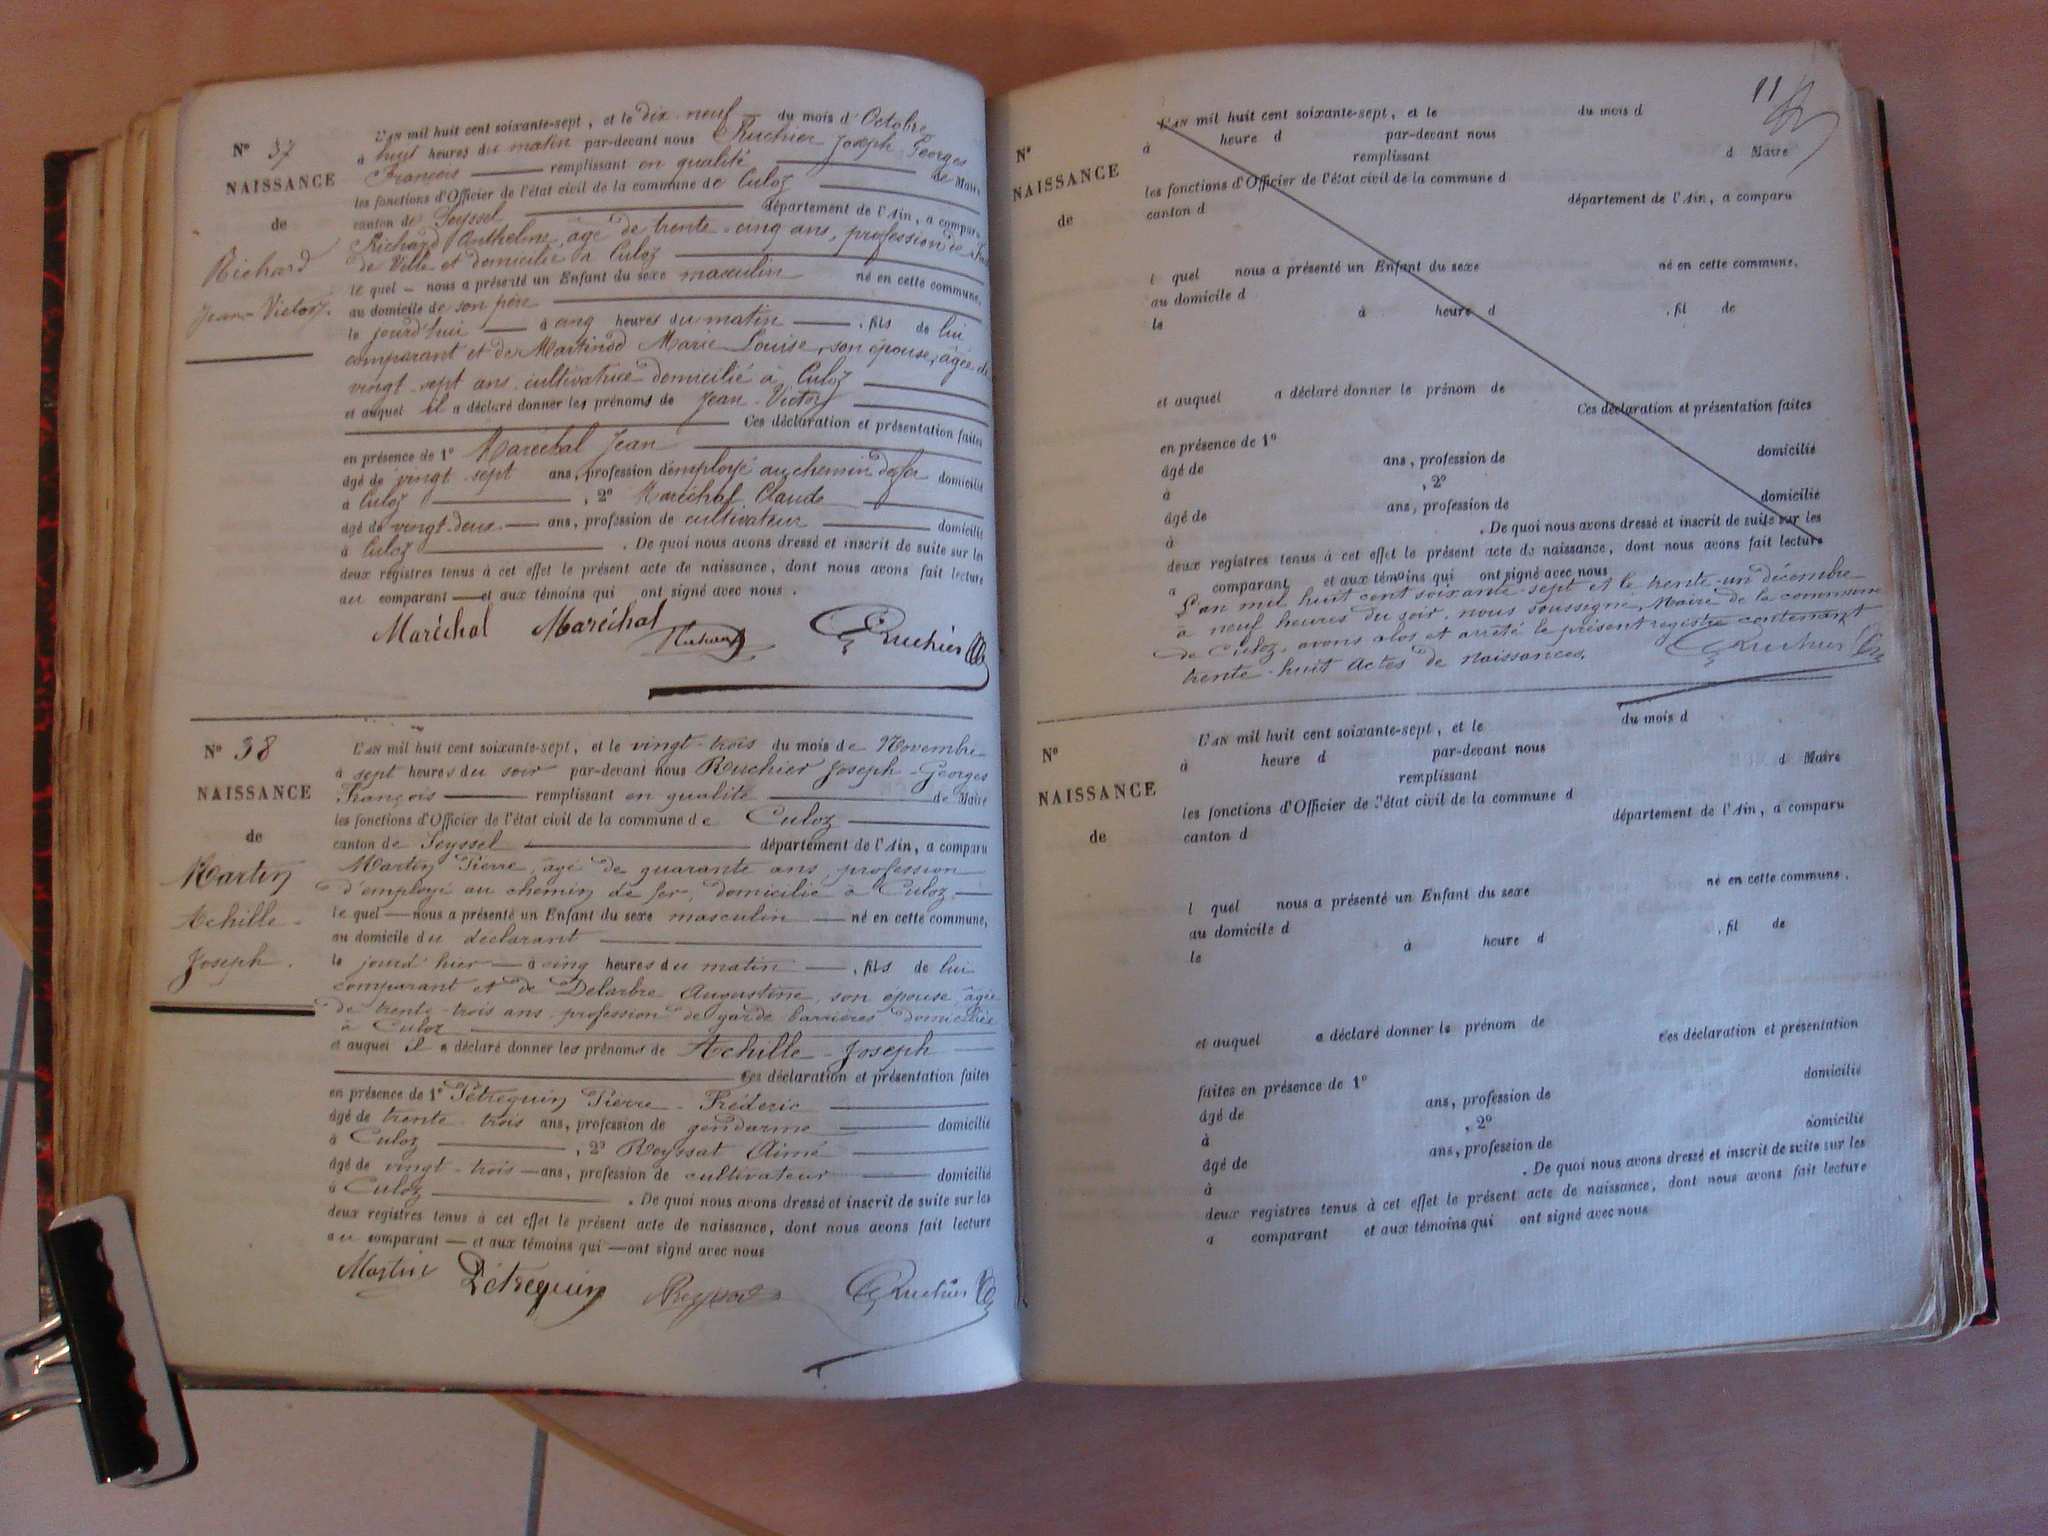 N° 37
NAISSANCE
de
Richard
Jean-Victor.
L'AN mil huit cent soixante-sept, et le dix neuf — du mois d'Octobre
à huit heures du matin par-devant nous Ruchier Joseph-Georges
François — remplissant en qualité — de Maire
les fonctions d'Officier de l'état civil de la commune de Culoz
canton de Seyssel — département de l'Ain, a comparu
Richard Anthelme, âgé de trente-cinq ans, profession de
de Ville et domicilié à Culoz
le quel — nous a présenté un Enfant du sexe masculin né en cette commune,
au domicile de son père
le jourd'hui — à cinq heures du matin —, fils de lui
comparant et de Martinod Marie Louise, son épouse, âgée de
vingt-sept ans, cultivatrice domicilié à Culoz
et auquel il a déclaré donner les prénoms de Jean-Victor
Ces déclaration et présentation faites
en présence de 1° Maréchal Jean
âgé de vingt-sept ans, profession d'employé au chemin de fer domicilié
à Culoz —, 2° Maréchal Claude
âgé de vingt-deux — ans, profession de cultivateur — domicilié
à Culoz —. De quoi nous avons dressé et inscrit de suite sur les
deux registres tenus à cet effet le présent acte de naissance, dont nous avons fait lecture
au comparant — et aux témoins qui ont signé avec nous.
Maréchal Maréchal Richard Ruchier
N° 38
NAISSANCE
de
Martin
Achille-
Joseph.
L'AN mil huit cent soixante-sept, et le vingt-trois du mois de Novembre
à sept heures du soir par-devant nous Ruchier Joseph-Georges
François — remplissant en qualité — de Maire
les fonctions d'Officier de l'état civil de la commune de Culoz
canton de Seyssel — département de l'Ain, a comparu
Martin Pierre, âgé de quarante ans, profession
d'employé au chemin de fer, domicilié à Culoz
le quel — nous a présenté un Enfant du sexe masculin — né en cette commune,
au domicile du déclarant
le jourd'hier — à cinq heures du matin —, fils de lui
comparant et de Delarbre Augustine, son épouse, âgée
de trente-trois ans, profession de garde barrières domiciliée
à Culoz
et auquel il a déclaré donner les prénoms de Achille-Joseph
Ces déclaration et présentation faites
en présence de 1° Pétrequin Pierre-Fréderic
âgé de trente-trois ans, profession de gendarme — domicilié
à Culoz —, 2° Reyssat Aimé
âgé de vingt-trois — ans, profession de cultivateur — domicilié
à Culoz —. De quoi nous avons dressé et inscrit de suite sur les
deux registres tenus à cet effet le présent acte de naissance, dont nous avons fait lecture
au comparant — et aux témoins qui — ont signé avec nous
Martin Pétrequin Ruchier
11
N°
NAISSANCE
de
L'AN mil huit cent soixante-sept, et le du mois d
à heure d par-devant nous
remplissant d Maire
les fonctions d'Officier de l'état civil de la commune d
canton d département de l'Ain, a comparu
l quel nous a présenté un Enfant du sexe né en cette commune,
au domicile d
le à heure d , fil de
et auquel a déclaré donner le prénom de
Ces déclaration et présentation faites
en présence de 1°
âgé de ans, profession de domicilié
à , 2°
âgé de ans, profession de domicilié
à . De quoi nous avons dressé et inscrit de suite sur les
deux registres tenus à cet effet le présent acte de naissance, dont nous avons fait lecture
a comparant et aux témoins qui ont signé avec nous
L'an mil huit cent soixante-sept et le trente-un décembre
à neuf heures du soir, nous soussigné, Maire de la commune
de Culoz, avons clos et arrêté le présent registre contenant
trente-huit Actes de naissances. Ruchier
N°
NAISSANCE
de
L'AN mil huit cent soixante-sept, et le du mois d
à heure d par-devant nous
remplissant d Maire
les fonctions d'Officier de l'état civil de la commune d
canton d département de l'Ain, a comparu
l quel nous a présenté un Enfant du sexe né en cette commune.
au domicile d
le à heure d , fil de
et auquel a déclaré donner le prénom de
Ces déclaration et présentation
faites en présence de 1° domicilié
âgé de ans, profession de
à , 2° domicilié
âgé de ans, profession de
à . De quoi nous avons dressé et inscrit de suite sur les
deux registres tenus à cet effet le présent acte de naissance, dont nous avons fait lecture
a comparant et aux témoins qui ont signé avec nous